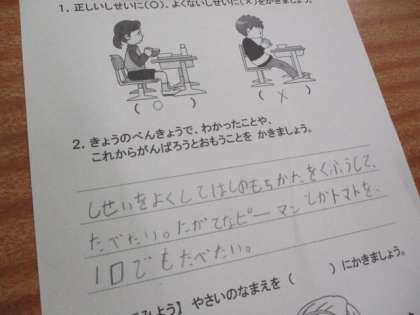 1. 正しいしせいに(○)、よくないしせいに(×)をかきましょう。
(○) (×)
2. きょうのべんきょうで、わかったことや、
これからがんばろうとおもうことを かきましょう。
しせいをよくしてはしのもちかたをくふうして、
たべたい。たがてなピーマンしがトマトを、
1口でもたべたい。
みよう】 やさいのなまえを( )にかきましょう。